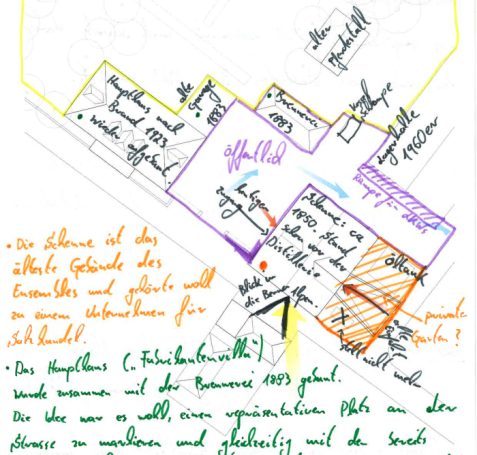 alter
Pferdestall
Haupthaus nach
Brand 1923
wieder aufgebaut.
alte
Garage
1883
Brennerei
1883
Lagerhalle
1960er
öffentlich
Rampe für LKWs
heutiger
Zugang
Scheune: ca
1850. Stand
schon vor der
Distillerie
Öltank
Blick in
die Berner Alpen.
steht nicht mehr
private
Garten?
• Die Scheune ist das
älteste Gebäude des
Ensembles und gehörte wohl
zu einem Unternehmen für
• Das Haupthaus („Fabrikantenvilla")
wurde zusammen mit der Brennerei 1883 gebaut.
Die Idee war es wohl, einen repräsentativen Platz an der
Strasse zu markieren und gleichzeitig mit den bereits